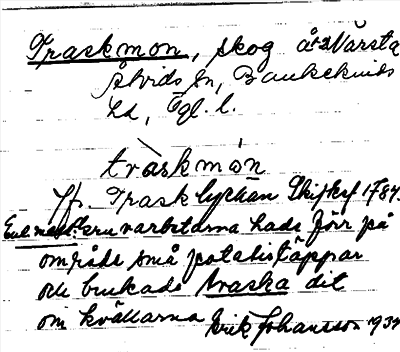 Traskmon, skog å 2 Värsta
Åtvids sn, Bankekinds
hd, Ögl. l.
tràskmón
Jfr. Trasklyckan Skifteskf 1784.
Enl. medd. bruksarbetarna hade förr på
område små potatistäppar
och brukade traska dit
om kvällarna Erik Johansson 1934